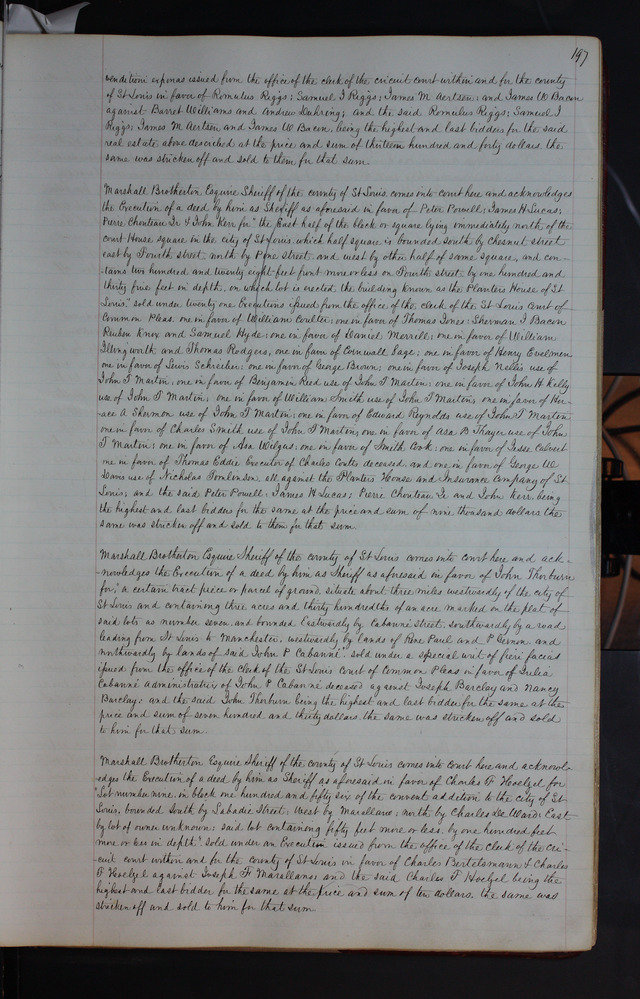 197
venditioni exponas issued from the office of the clerk of the circuit court within and for the county
of St Louis in favor of Romulus Riggs; Samuel J Riggs; James M Aertsen; and James W Bacon
against Barret Williams and Andrew Duhring; and the said Romulus Riggs; Samuel J
Riggs; James M Aertsen and James W Bacon, being the highest and last bidders for the said
real estate above described at the price and sum of thirteen hundred and forty dollars the
same was stricken off and sold to them for that sum.
Marshall Brotherton Esquire Sheriff of the county of St Louis comes into court here and acknowledges
the Execution of a deed by him as Sheriff as aforesaid in favor of Peter Powell; James H Lucas;
Pierre Chouteau Jr & John Kerr for "the East half of the block or square lying immediately north of the
court House square in the city of St Louis, which half square is bounded south by chesnut street
east by Fourth street, north by Pine street, and west by other half of same square, and con-
tains two hundred and twenty eight feet front more or less on Fourth street, by one hundred and
thirty five feet in depth, on which lot is erected the building known as the Planters House of St
Louis," sold under twenty one Executions issued from the office of the clerk of the St Louis Court of
Common Pleas, one in favor of William Coulter; one in favor of Thomas Jones; Sherman J Bacon
Reuben Knox and Samuel Hyde; one in favor of Daniel Merrill; one in favor of William
Illingworth and Thomas Rodgers, one in favor of Cornwall Sage; one in favor of Henry Evelman
one in favor of Lewis Schreiber; one in favor of George Brown; one in favor of Joseph Nellis use of
John T Martin; one in favor of Benjamin Reed use of John T Martin; one in favor of John H Kelly
use of John T Martin; one in favor of William Smith use of John T Martin; one in favor of Hor-
ace A Shermon use of John T Martin; one in favor of Edward Reynolds use of John T Martin
one in favor of Charles Smith use of John T Martin; one in favor of Asa B Thayer use of John
T Martin; one in favor of Asa Wilgus; one in favor of Smith Cook; one in favor of Jesse Calvert
one in favor of Thomas Eddie Executor of Charles Coates deceased, and one in favor of George W
Davis use of Nicholas Tomlinson, all against the Planters House and Insurance Company of St
Louis; and the said Peter Powell; James H Lucas; Pierre Chouteau Jr and John Kerr being
the highest and last bidders for the same at the price and sum of nine thousand dollars the
same was stricken off and sold to them for that sum.
Marshall Brotherton Esquire Sheriff of the county of St Louis comes into court here and ack-
-nowledges the Execution of a deed by him as Sheriff as aforesaid in favor of John Thorburn
for, "a certain tract piece or parcel of ground, situate about three miles westwardly of the city of
St Louis and containing three acres and thirty hundredths of an acre, marked on the plat of
said lots as number seven, and bounded Eastwardly by Cabanne street, southwardly by a road
leading from St Louis to Manchester, westwardly by lands of Rene Paul and P Gernon, and
northwardly by lands of said John P Cabanne," sold under a special writ of fieri facias
issued from the office of the clerk of the St Louis Court of Common Pleas in favor of Julia
Cabanne administratrix of John P Cabanne deceased against Joseph Barclay and Nancy
Barclay; and the said John Thorburn being the highest and last bidder for the same at the
price and sum of seven hundred and thirty dollars, the same was stricken off and sold
to him for that sum.
Marshall Brotherton Esquire Sheriff of the county of St Louis comes into court here and acknowl-
-edges the Execution of a deed by him as Sheriff as aforesaid in favor of Charles F Hoelzel for
"Lot number nine, in block one hundred and fifty six of the convent addition to the city of St
Louis, bounded South by Labadie Street; West by Marellano; north by Charles De Ward; East
by lot of owner unknown; said lot containing fifty feet more or less, by one hundred feet
more or less in depth", sold under an Execution issued from the office of the Clerk of the Cir-
-cuit court within and for the county of St Louis in favor of Charles Bertelsmann & Charles
F Hoelzel against Joseph H Marellano; and the said Charles F Hoelzel being the
highest and last bidder for the same at the price and sum of ten dollars, the same was
stricken off and sold to him for that sum